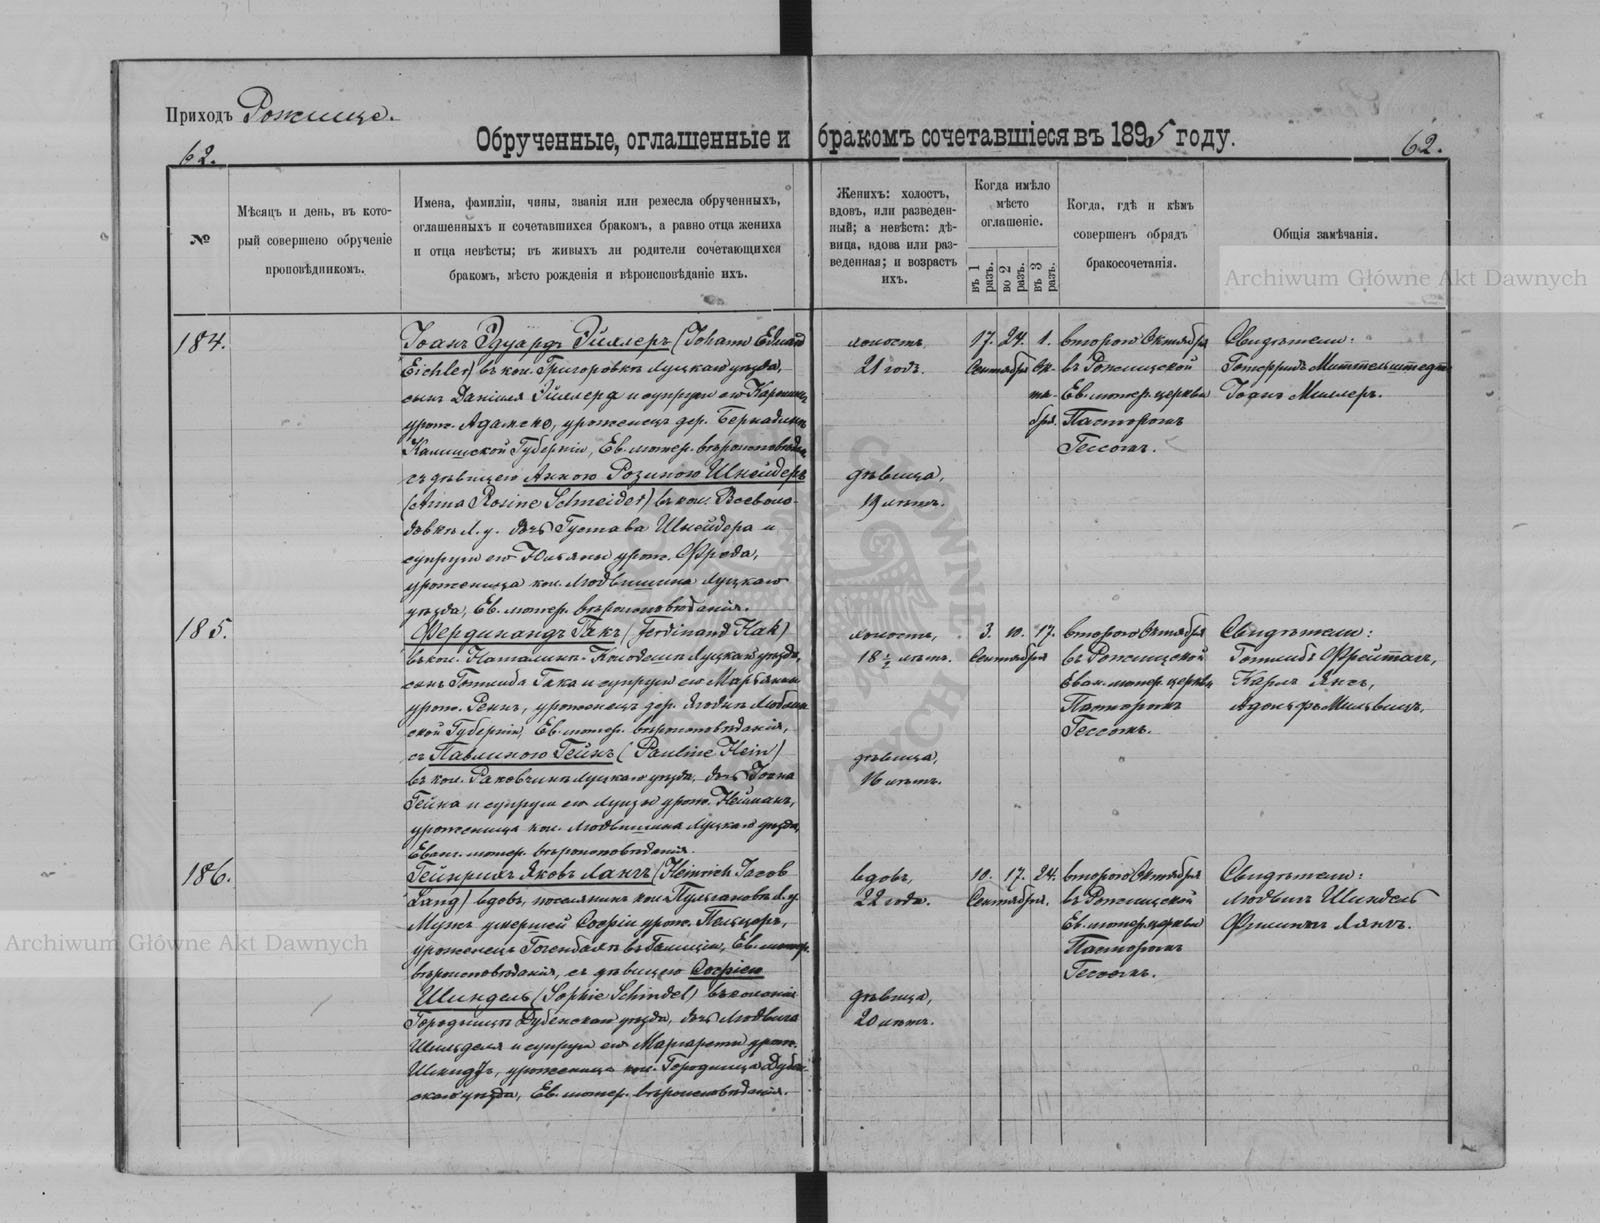 Приходъ Рожище.
Обрученные, оглашенные и бракомъ сочетавшіеся въ 1895 году.
62.
62.
№
Мѣсяцъ и день, въ кото-
рый совершено обрученіе
проповѣдникомъ.
Имена, фамиліи, чины, званія или ремесла обрученныхъ,
оглашенныхъ и сочетавшихся бракомъ, а равно отца жениха
и отца невѣсты; въ живыхъ ли родители сочетающихся
бракомъ, мѣсто рожденія и вѣроисповѣданіе ихъ.
Женихъ: холостъ,
вдовъ, или разведен-
ный; а невѣста: дѣ-
вица, вдова или раз-
веденная; и возрастъ
ихъ.
Когда имѣло
мѣсто
оглашеніе.
въ 1 разъ.
во 2 разъ.
въ 3 разъ.
Когда, гдѣ и кѣмъ
совершенъ обрядъ
бракосочетанія.
Общія замѣчанія.
Archiwum Główne Akt Dawnych
184.
Іоанъ Эдуардъ Эйхлеръ (Johann Eduard
Eichler) въ кол. Григоровкѣ Луцкаго уѣзда,
сынъ Даніила Эйхлера и супруги его Каролины
урож. Адамско, уроженецъ дер.
Калишской Губерніи, Ев. лютер. вѣроисповѣданія
съ дѣвицею Анною Розиною Шнейдеръ
(Anna Rosine Schneider) въ кол. Воеволо-
довкѣ Л. у. дочь Густава Шнейдера и
супруги его Юльяны урож. Фрода,
уроженица кол. Людвишина Луцкаго
уѣзда, Ев. лютер. вѣроисповѣданія.
холостъ,
21 годъ.
дѣвица,
19 лѣтъ.
17. 24. 1.
Сентября Ок-
тя-
бря.
второго Октября
въ Рожищской
Ев. лютер. церкви
Пасторомъ
Гессомъ.
Свидѣтели:
Готфридъ Миттельштедтъ
Іоанъ Миллеръ.
185.
Фердинандъ Гакъ (Ferdinand Hak)
въ кол. Наталинъ-Колодежъ Луцкаго уѣзда,
сынъ Готлиба Гака и супруги его Марьянны
урож. Рennъ, уроженецъ дер. Люблин
ской Губерніи, Ев. лютер. вѣроисповѣданія,
съ Павлиною Гейнъ (Pauline Hein)
въ кол. Раковчинъ Луцкаго уѣзда, дочь Іоана
Гейна и супруги его Луизы урож. Нейманъ,
уроженица кол. Людвишина Луцкаго уѣзда,
Еванг. лютер. вѣроисповѣданія.
холостъ,
18 ½ лѣтъ.
дѣвица,
16 лѣтъ.
3. 10. 17.
Сентября
второго Октября
въ Рожищской
Еван. лютер. церкви
Пасторомъ
Гессомъ.
Свидѣтели:
Готлибъ Фрейтагъ,
Карлъ Яксъ,
Адольфъ
186.
Гейнрихъ Яковъ Лангъ (Heinrich Jacob
Lang) вдовъ, поселянинъ кол. Пульгановкѣ Л. у.
Мужъ умершей Софіи урож. Пельцеръ,
уроженецъ въ Галиціи, Ев. лютер.
вѣроисповѣданія, съ дѣвицею Софіею
Шиндель (Sophie Schindel) въ колоніи
Городница Дубенскаго уѣзда, дочь Людвига
Шинделя и супруги его Маргареты урож.
Шмидтъ, уроженица кол. Городница Дубен-
скаго уѣзда, Ев. лютер. вѣроисповѣданія.
вдовъ,
22 года.
дѣвица,
20 лѣтъ.
10. 17. 24.
Сентября.
второго Октября
въ Рожищской
Ев. лютер. церкви
Пасторомъ
Гессомъ.
Свидѣтели:
Людвигъ Шиндель
Филиппъ Лангъ.
Archiwum Główne Akt Dawnych